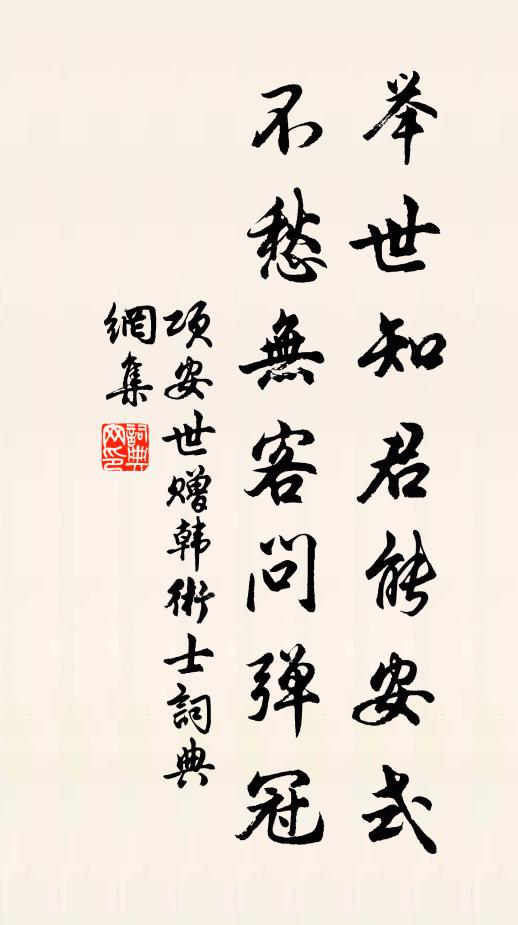 举世知君能安式
不愁無客问弹冠
项安世赠韩術士詞典
網集
詞典网印